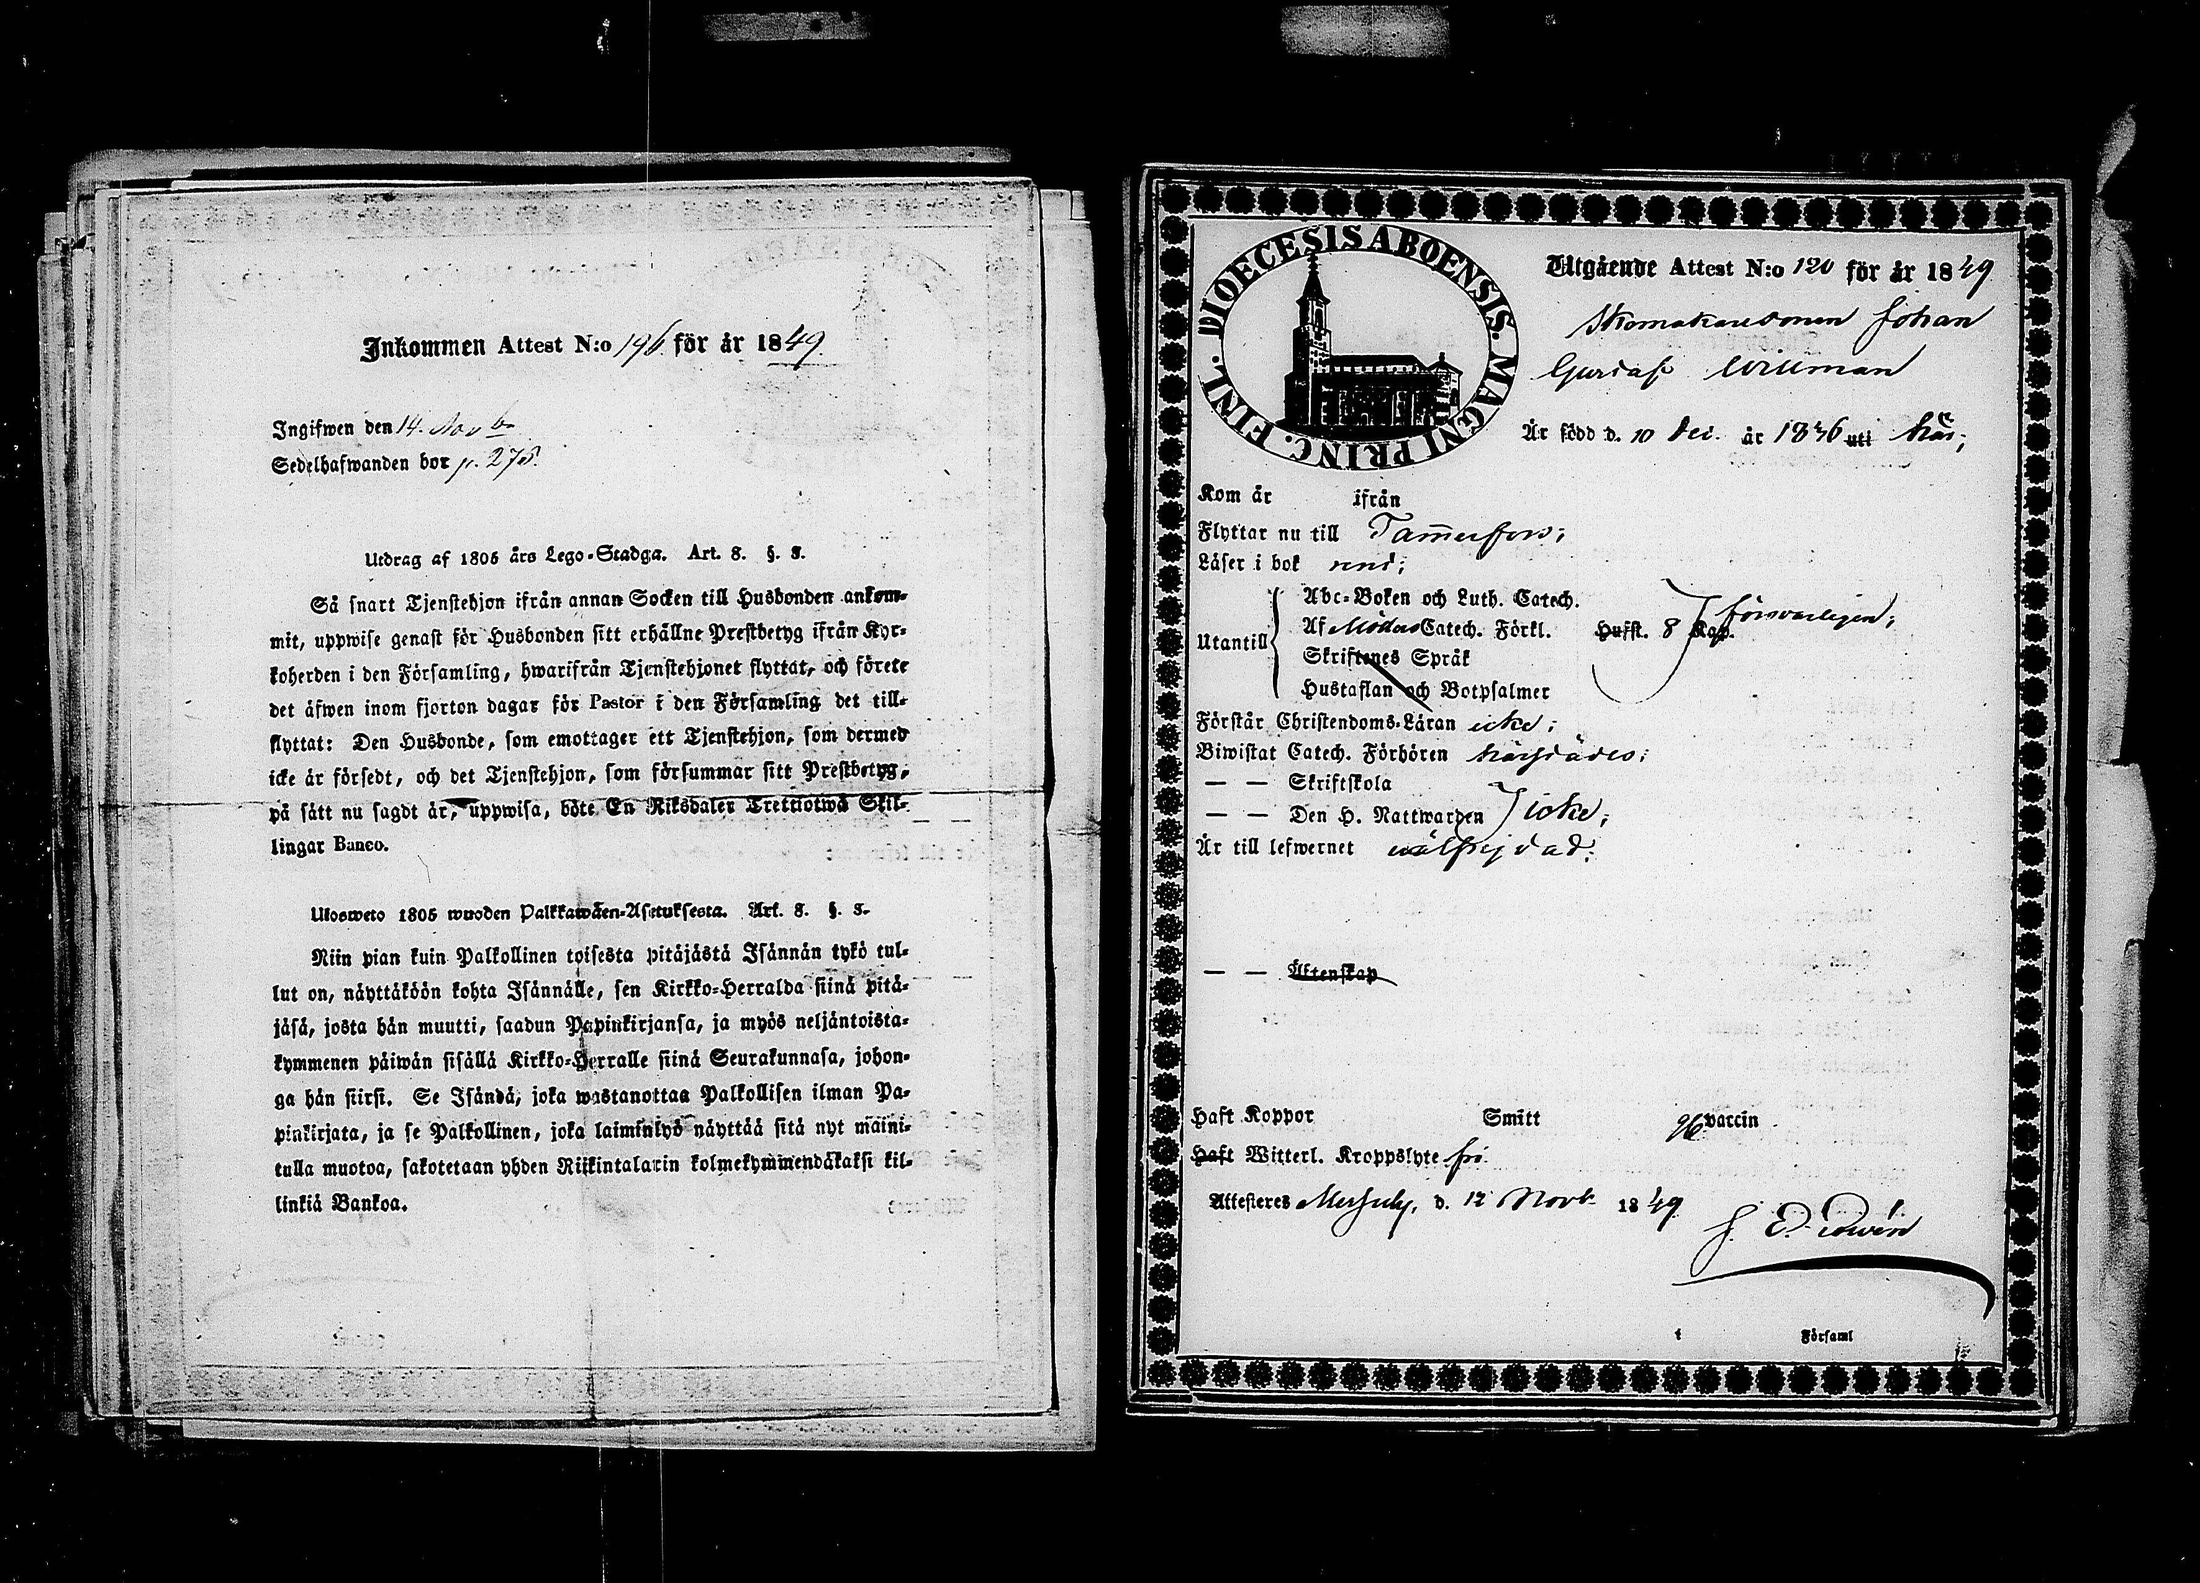 Inkommen Attest N:o 196 för år 1849.
Ingifwen den 14. Novb.
Sedelhafwanden bor p. 275.
Utdrag af 1805 års Lego-Stadga. Art. 8. §. 8.
Så snart Tjenstehjon ifrån annan Socken till Husbonden ankom-
mit, uppwise genast för Husbonden sitt erhållne Prestbetyg ifrån Kyr-
koherden i den Församling, hwarifrån Tjenstehjonet flyttat, och förete
det äfwen inom fjorton dagar för Pastor i den Församling det till-
flyttat: Den Husbonde, som emottager ett Tjenstehjon, som dermed
icke är försedt, och det Tjenstehjon, som försummar sitt Prestbetyg,
på sätt nu sagdt är, uppwisa, böte En Riksdaler Trettiotwå Skil-
lingar Banco.
Ulosweto 1805 wuoden Palkkawäen-Asetuksesta. Art. 8. §. 8.
Niin pian kuin Palkollinen toisesta pitäjästä Isännän tykö tul-
lut on, näyttäköön kohta Isännälle, sen Kirkko-Herralda siinä pitä-
jäsä, josta hän muutti, saadun Papinkirjansa, ja myös neljäntoista-
kymmenen päiwän sisällä Kirkko-Herralle siinä Seurakunnasa, johon-
ga hän siirsi. Se Isändä, joka wastanottaa Palkollisen ilman Pa-
pinkirjata, ja se Palkollinen, joka laiminlyö näyttää sitä nyt maini-
tulla muotoa, sakotetaan yhden Riikintalarin kolmekymmendäkaksi kil-
linkiä Bankoa.
DIOECESIS ABOENSIS. MAGNI PRINC. FINL.
Utgående Attest N:o 120 för år 1849
Skomakaresonen Johan
Gustaf Willman
Är född d. 10 Dec. år 1836 uti här;
Kom år ifrån
Flyttar nu till Tammerfors;
Läser i bok rent;
Utantill
Abc-Boken och Luth. Catech.
Af Möllers Catech. Förkl. Hufst. 8 Kap. försvarligen;
Skriftenes Språk
Hustaflan och Botpsalmer
Förstår Christendoms-Läran icke;
Biwistat Catech. Förhören härstädes;
— — Skriftskola
— — Den H. Nattwarden icke;
Är till lefwernet välfrejdad;
— — Äktenskap
Haft Koppor Smitt vaccin
Haft Witterl. Kroppslyte fri
Attesteres d. 12 Novb. 1849
Församl